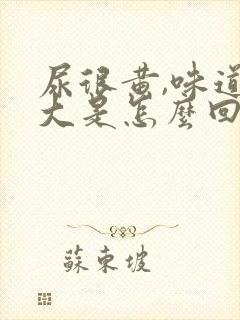 尿很黄,味道
大是怎麼回
蘇東坡